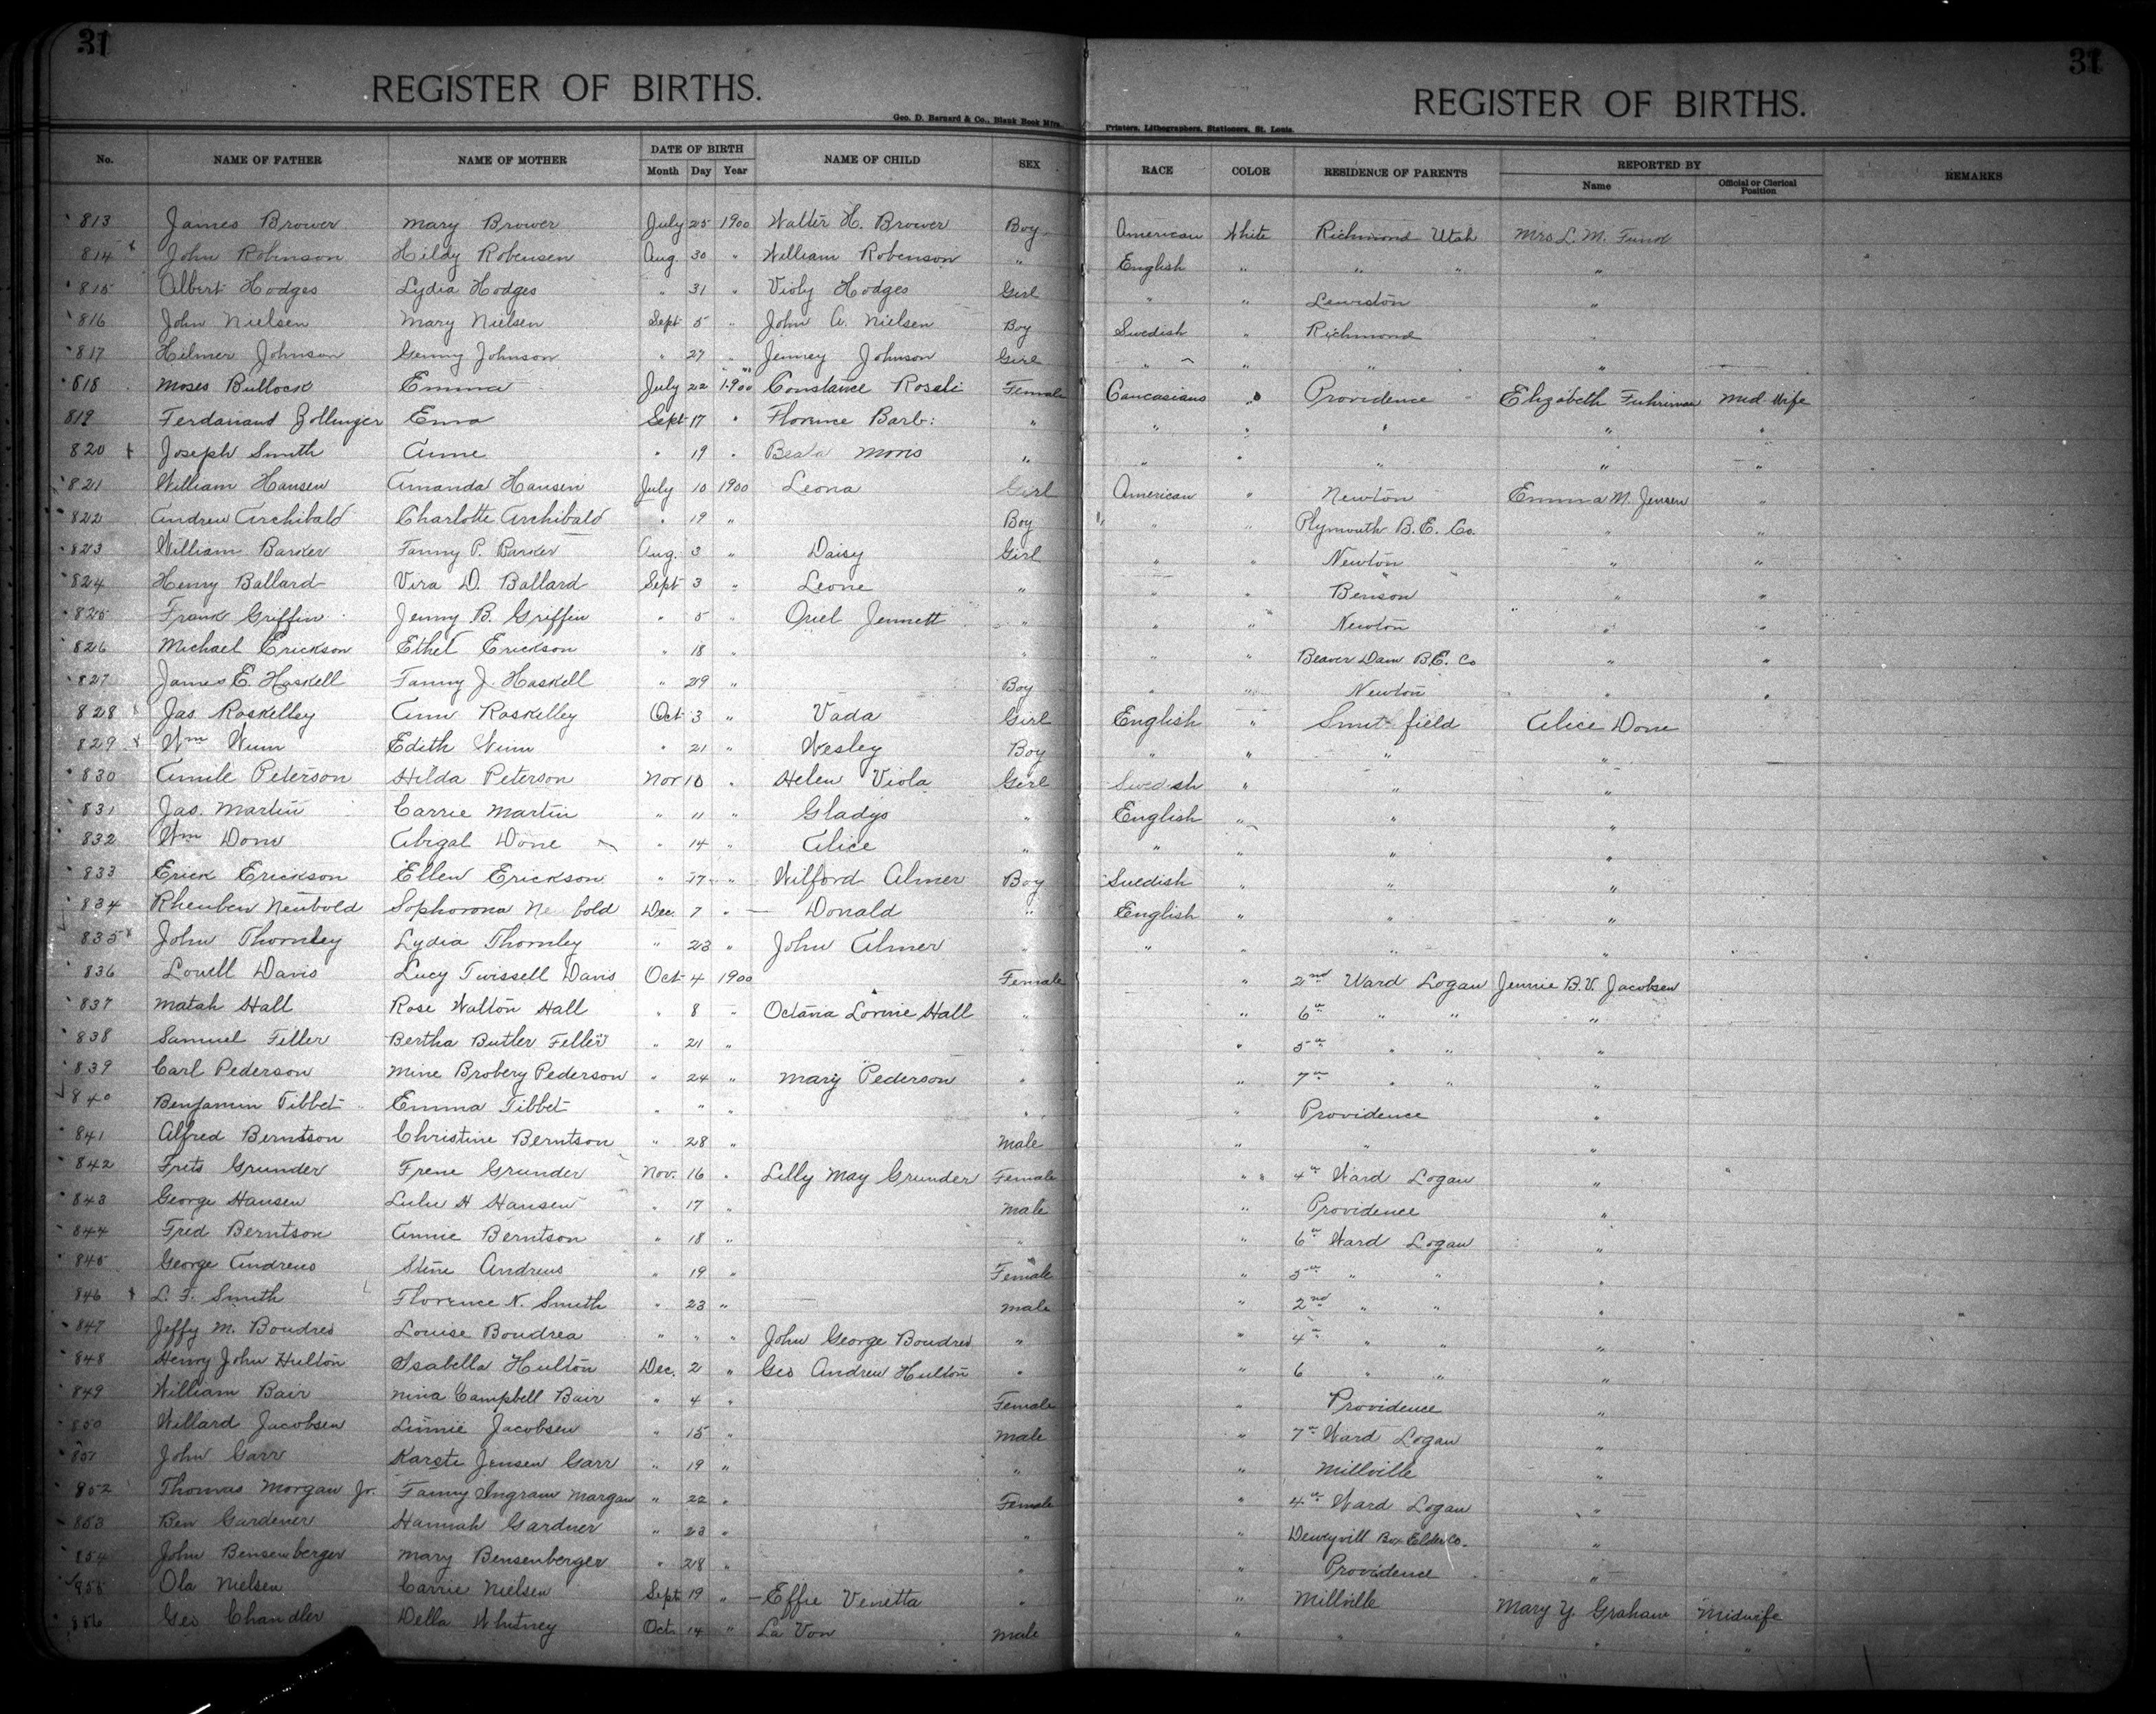 31
31
REGISTER OF BIRTHS.
REGISTER OF BIRTHS.
Geo. D. Barnard & Co., Blank Book Mfrs.
Printers, Lithographers, Stationers, St. Louis.
No. NAME OF FATHER NAME OF MOTHER DATE OF BIRTH Month Day Year NAME OF CHILD SEX RACE COLOR RESIDENCE OF PARENTS REPORTED BY Name Official or Clerical Position REMARKS
813 James Brower Mary Brower July 25 1900 Walter H. Brower Boy American White Richmond Utah Mrs L. M. Funk
814 John Robinson Hildy Robensen Aug. 30 " William Robenson " English " " " "
815 Albert Hodges Lydia Hodges " 31 " Violy Hodges Girl " " Lewiston "
816 John Nielsen Mary Nielsen Sept 5 " John A. Nielsen Boy Swedish " Richmond
817 Hilmer Johnson Genny Johnson " 27 " Jenney Johnson Girl " " " "
818 Moses Bullock Emma July 22 1900 Constance Roseli Female Caucasians " Providence Elizabeth Fuhriman Mid Wife
819 Ferdanand Zollinger Emma Sept 17 " Florence Barb: " " " " " "
820 Joseph Smith Anne " 19 " Besta Moris " " " " " "
821 William Hansen Amanda Hansen July 10 1900 Leona Girl American " Newton Emma M. Jensen "
822 Andrew Archibald Charlotte Archibald " 19 " Boy " " Plymouth B. E. Co. " "
823 William Barker Fanny P. Barker Aug. 3 " Daisy Girl " " Newton " "
824 Henry Ballard Vira D. Ballard Sept 3 " Leone " " " Benson " "
825 Frank Griffin Jenny B. Griffin " 5 " Oriel Jennett " " " Newton " "
826 Michael Erickson Ethel Erickson " 18 " " " " Beaver Dam B.E. Co " "
827 James E. Haskell Fanny J. Haskell " 29 " Boy " " Newton " "
828 Jas Raskelley Ann Raskelley Oct 3 " Vada Girl English " Smithfield Alice Done
829 Wm Nunn Edith Nunn " 21 " Wesley Boy " " " "
830 Amile Peterson Hilda Peterson Nov 10 " Helen Viola Girl Swedish " " "
831 Jas. Martin Carrie Martin " 11 " Gladys " English " " "
832 Wm Done Abigal Done " 14 " Alice " " " " "
833 Erick Erickson Ellen Erickson " 17 " Wilford Almer Boy Swedish " " "
834 Rheuben Neubold Sophorona Ne bold Dec. 7 " Donald " English " " "
835 John Thornley Lydia Thornley " 23 " John Almer " " " " "
836 Lovell Davis Lucy Twissell Davis Oct 4 1900 Female " 2nd Ward Logan Jennie B.V. Jacobsen
837 Matah Hall Rose Walton Hall " 8 " Octavia Lorine Hall " " 6th " " "
838 Samuel Feller Bertha Butler Feller " 21 " " " 5th " " "
839 Carl Pederson Mine Brobery Pederson " 24 " Mary Pederson " " 7th " " "
840 Benjamin Tibbet Emma Tibbet " " " " " Providence "
841 Alfred Berntson Christine Berntson " 28 " Male " " "
842 Frits Grunder Frene Grunder Nov. 16 " Lilly May Grunder Female " 4th Ward Logan "
843 George Hansen Lulu H Hansen " 17 " Male " Providence "
844 Fred Berntson Annie Berntson " 18 " " " 6th Ward Logan "
845 George Andrews Stine Andrews " 19 " Female " 5th " " "
846 L. F. Smith Florence N. Smith " 23 " Male " 2nd " " "
847 Jeffy M. Boudres Louise Boudrea " " " John George Boudres " " 4th " " "
848 Henry John Hulton Isabella Hulton Dec. 2 " Geo Andrew Hulton " " 6 " " "
849 William Bair Nina Campbell Bair " 4 " Female " Providence "
850 Willard Jacobsen Linnie Jacobsen " 15 " Male " 7th Ward Logan "
851 John Garr Karste Jensen Garr " 19 " " " Millville "
852 Thomas Morgan Jr. Fanny Ingram Margan " 22 " Female " 4th Ward Logan "
853 Ben Gardener Hannah Gardner " 23 " " " Deweyvill Box Elder Co. "
854 John Bensenberger Mary Bensenberger " 28 " " " Providence "
855 Ola Nielsen Carrie Nielsen Sept 19 " Effie Venetta " " Millville Mary Y. Graham Midwife
856 Geo Chandler Della Whitney Oct. 14 " La Von Male " " " "